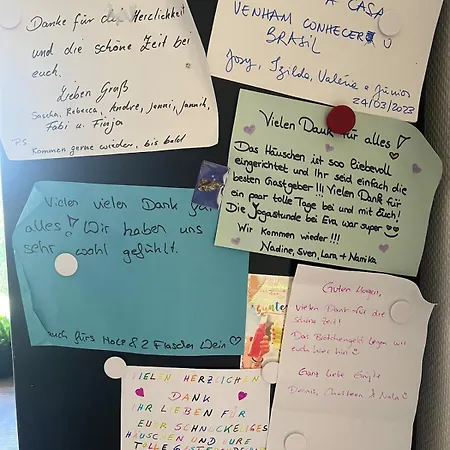 Danke für die Herzlichkeit
und die schöne Zeit bei
euch.
Lieben Gruß
Sascha, Rebecca, Andre, Jenni, Jannik,
Fabi u. Finja
P.S.
Kommen gerne wieder, bis bald
A CASA
VENHAM CONHECER O
BRASIL
Josy, Izilda, Valéria e Júnior
24/03/2023
Vielen Dank für alles!
Das Häuschen ist sooo liebevoll
eingerichtet und Ihr seid einfach die
besten Gastgeber!!! Vielen Dank für
ein paar tolle Tage bei und mit Euch!
Die Yogastunde bei Eva war super
Wir kommen wieder!!!
Nadine, Sven, Lara +
Vielen vielen Dank für
alles! Wir haben uns
sehr wohl gefühlt.
auch fürs Holz & 2 Flaschen Wein
Guten Morgen,
vielen Dank für die
schöne Zeit!
Das Brötchengeld legen wir
euch hier hin
Ganz liebe Grüße
Dennis,
VIELEN HERZLICHEN
DANK
IHR LIEBEN FÜR
EUER SCHNUCKELIGES
HÄUSCHEN UND EURE
TOLLE